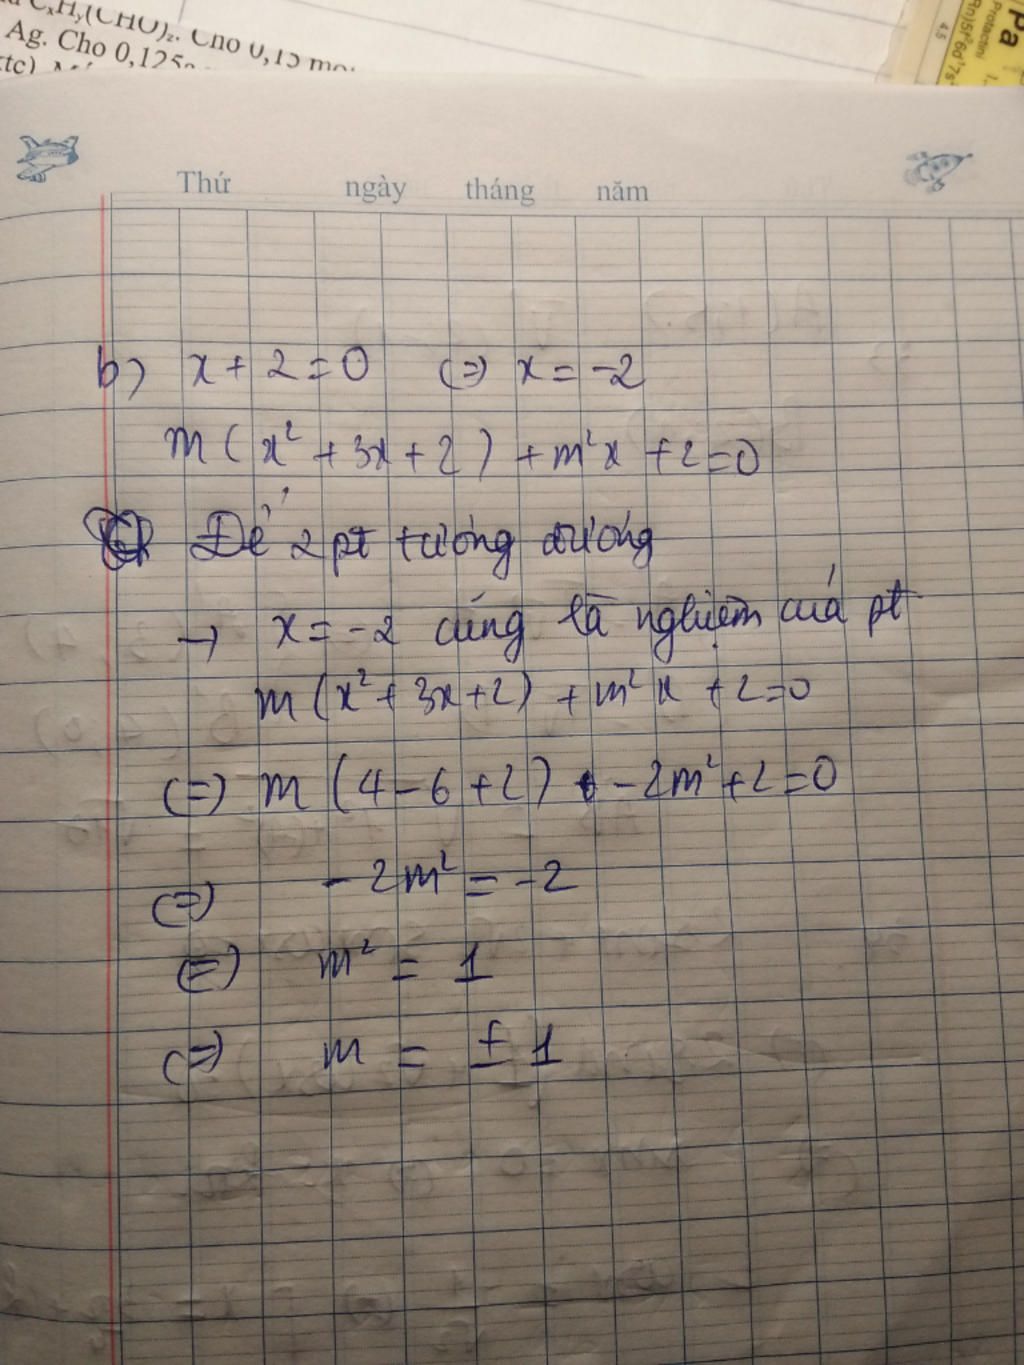 CₓHᵧ(CHO)z. Cho 0,15 mo
Ag. Cho 0,125
Pa
Protactini
Thứ ngày tháng năm
b) x + 2 = 0 (=) x = -2
m ( x² + 3x + 2 ) + m²x + 2 = 0
Để 2 pt tương đương
→ x = -2 cũng là nghiệm của pt
m (x² + 3x + 2) + m² x + 2 = 0
(=) m (4 - 6 + 2) - 2m² + 2 = 0
(=) - 2m² = -2
(=) m² = 1
(=) m = ± 1